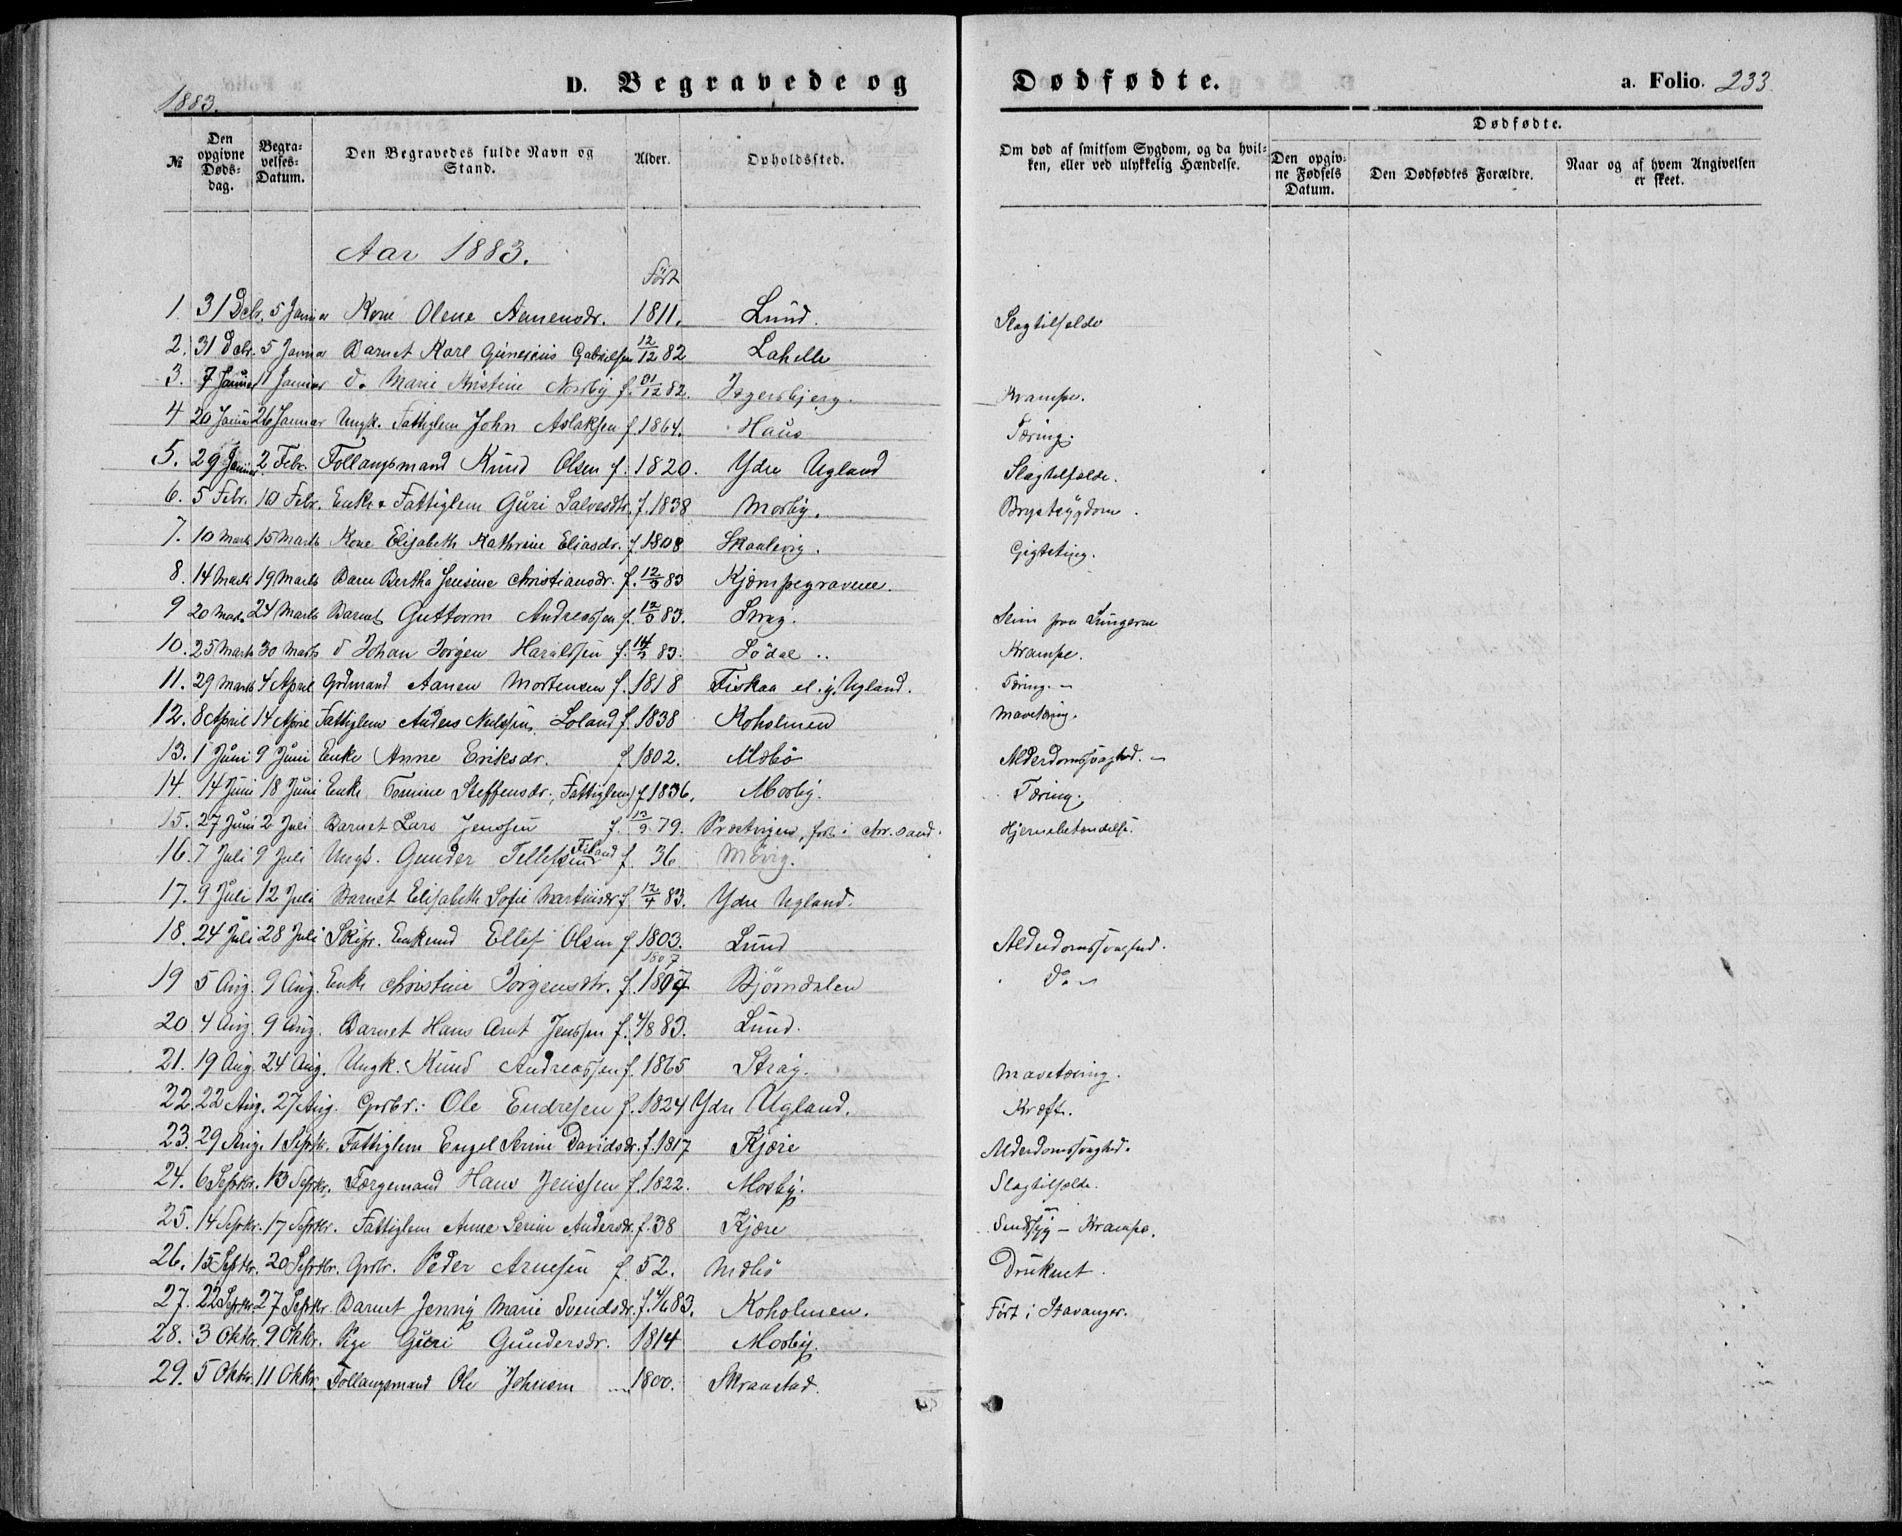 1883.
D. Begravede og Dødfødte.
a. Folio. 233.
№
Den opgivne Døds-dag.
Begra-velses-Datum.
Den Begravedes fulde Navn og Stand.
Alder.
Opholdssted.
Om død af smitsom Sygdom, og da hvil-ken, eller ved ulykkelig Hændelse.
Dødfødte.
Den opgiv-ne Fødsels Datum.
Den Dødfødtes Forældre.
Naar og af hvem Angivelsen er skeet.
Aar 1883.
Født
1. 31 Decbr. 5 Januar Kone Olene Aanensdr. 1811. Lund. Slagtilfælde
2. 31 Dcbr. 5 Januar Barnet Karl Gabrielsen 12/12 82 Lahelle
3. 7 Januar 11 Januar do Marie Kristine Norby f. 12 82. Jegersbjerg. Krampe.
4 20 Januar 26 Januar Ungk. Fattiglem John Aslaksen f 1864. Haus Tæring.
5. 29 Januar 2 Febr. Follaugsmand Knud Olsen f. 1820. Ydre Ugland Slagtilfælde.
6. 5 Febr. 10 Febr. Enke Fattiglem Guri Salvesdtr. f. 1838 Mosby. Brystsygdom.
7. 10 Marts 15 Marts Kone Elisabeth Kathrine Eliasdr. f 1808 Skaalevig.
8. 14 Marts 19 Marts Barn Bertha Jensine Christiansdr. f. 12/3 83 Kjæmpegravene.
9 20 Marts 24 Marts Barnet Guttorm Andreassen f. 12/3 83. Strag. Slim paa Lungerne
10. 25 Marts 30 Marts d Johan Jørgen Haraldsen f. 14/3 83. Lödal Krampe.
11. 29 Marts 4 April Grdmand Aanen Mortensen f. 1818 Fiskaa el. y. Ugland. Tæring.
12. 8 April 14 April Fattiglem Anders Nielssen Loland f. 1838 Koholmen Mavetæring.
13. 1 Juni 9 Juni Enke Anne Eriksdr. f 1802. Mæbö Alderdomssvaghed.
14. 14 Juni 18 Juni Enke Tomine Steffensdr. (Fattiglem) f 1836. Mosby. Tæring.
15. 27 Juni 2 Juli Barnet Lars Jenssen f. 12/9 79. Prestvigen, født i Chr.sand. Hjernebetændelse.
16. 7 Juli 9 Juli Ungk. Gunder Tellefsen f. 36 Movig.
17. 9 Juli 12 Juli Barnet Elisabeth Sofie Martinsdr f 12/4 83. Ydre Ugland.
18. 24 Juli 28 Juli Skipr. Enkemd Ellef Olsen f 1803. Lund Alderdomssvaghed.
19 5 Aug. 9 Aug. Enke Christine Jörgensdtr. f. 1807 1807 Bjørndalen do
20 4 Aug. 9 Aug. Barnet Hans Arnt Jenssen f. 4/8 83. Lund.
21. 19 Aug. 24 Aug. Ungk. Knud Andreassen f. 1865 Strag. Mavetæring.
22. 22 Aug. 27 Aug. Grbr. Ole Endresen f. 1824 Ydre Ugland. Kræft.
23. 29 Aug. 1 Septbr. Fattiglem Engel Serine Davidsdr. f. 1817 Kjære Alderdomssvaghed.
24. 6 Septbr. 13 Septbr. Færgemand Hans Jenssen f. 1822. Mosby. Slagtilfælde.
25. 14 Septbr. 17 Septbr. Fattiglem Anne Serine Andersdr. f. 38 Kjære Sindssyg - Krampe.
26. 15 Septbr. 20 Septbr. Grbr. Peder Arnesen f. 52. Mæbö Druknet.
27. 22 Septbr. 27 Septbr Barnet Jenny Marie Svendsdr. f. 4/6 83. Koholmen. Født i Stavanger.
28. 3 Oktbr. 9 Oktbr. Pige Guri Gundersdr. 1814 Mosby.
29. 5 Oktbr. 11 Oktbr. Follaugsmand Ole Johnsen 1800. Skraastad.